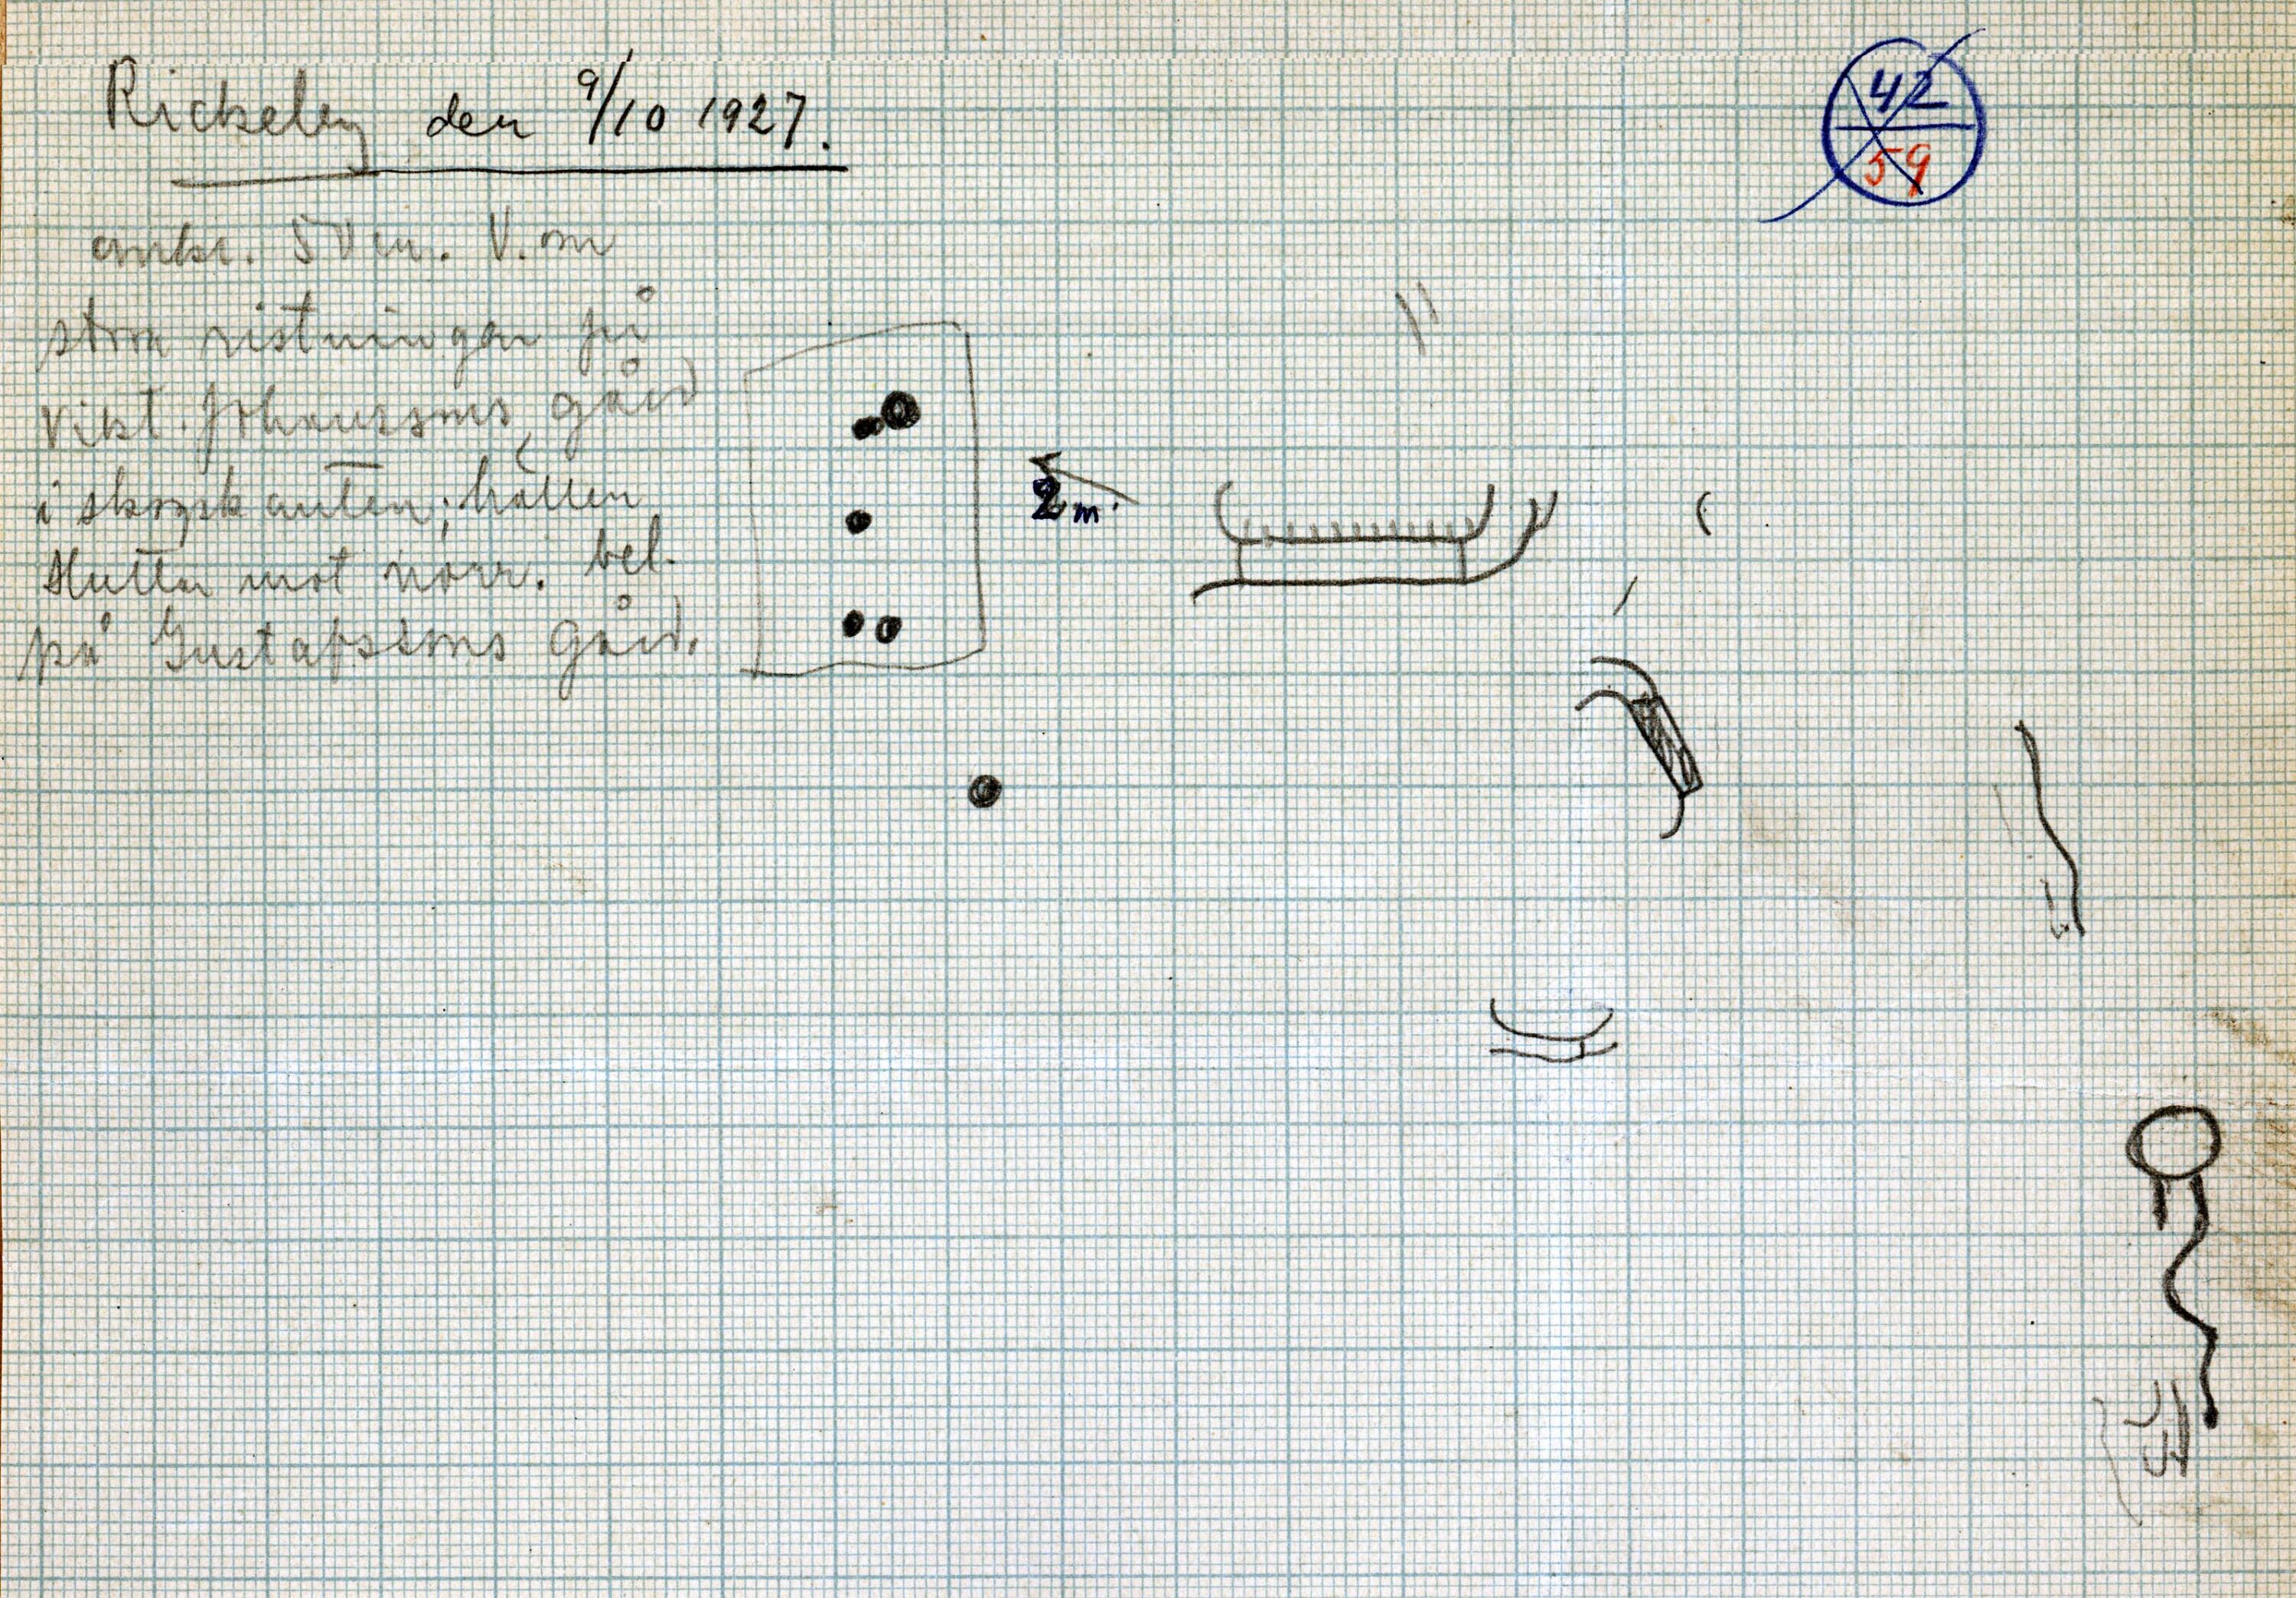 Rickeby den 9/10 1927.
42
59
omkr. 50 m. V. om
stora ristningen på
Vikt. Johanssons gård
i skogskanten; hällen
sluttar mot norr. bel.
på Gustafssons gård.
2 m.